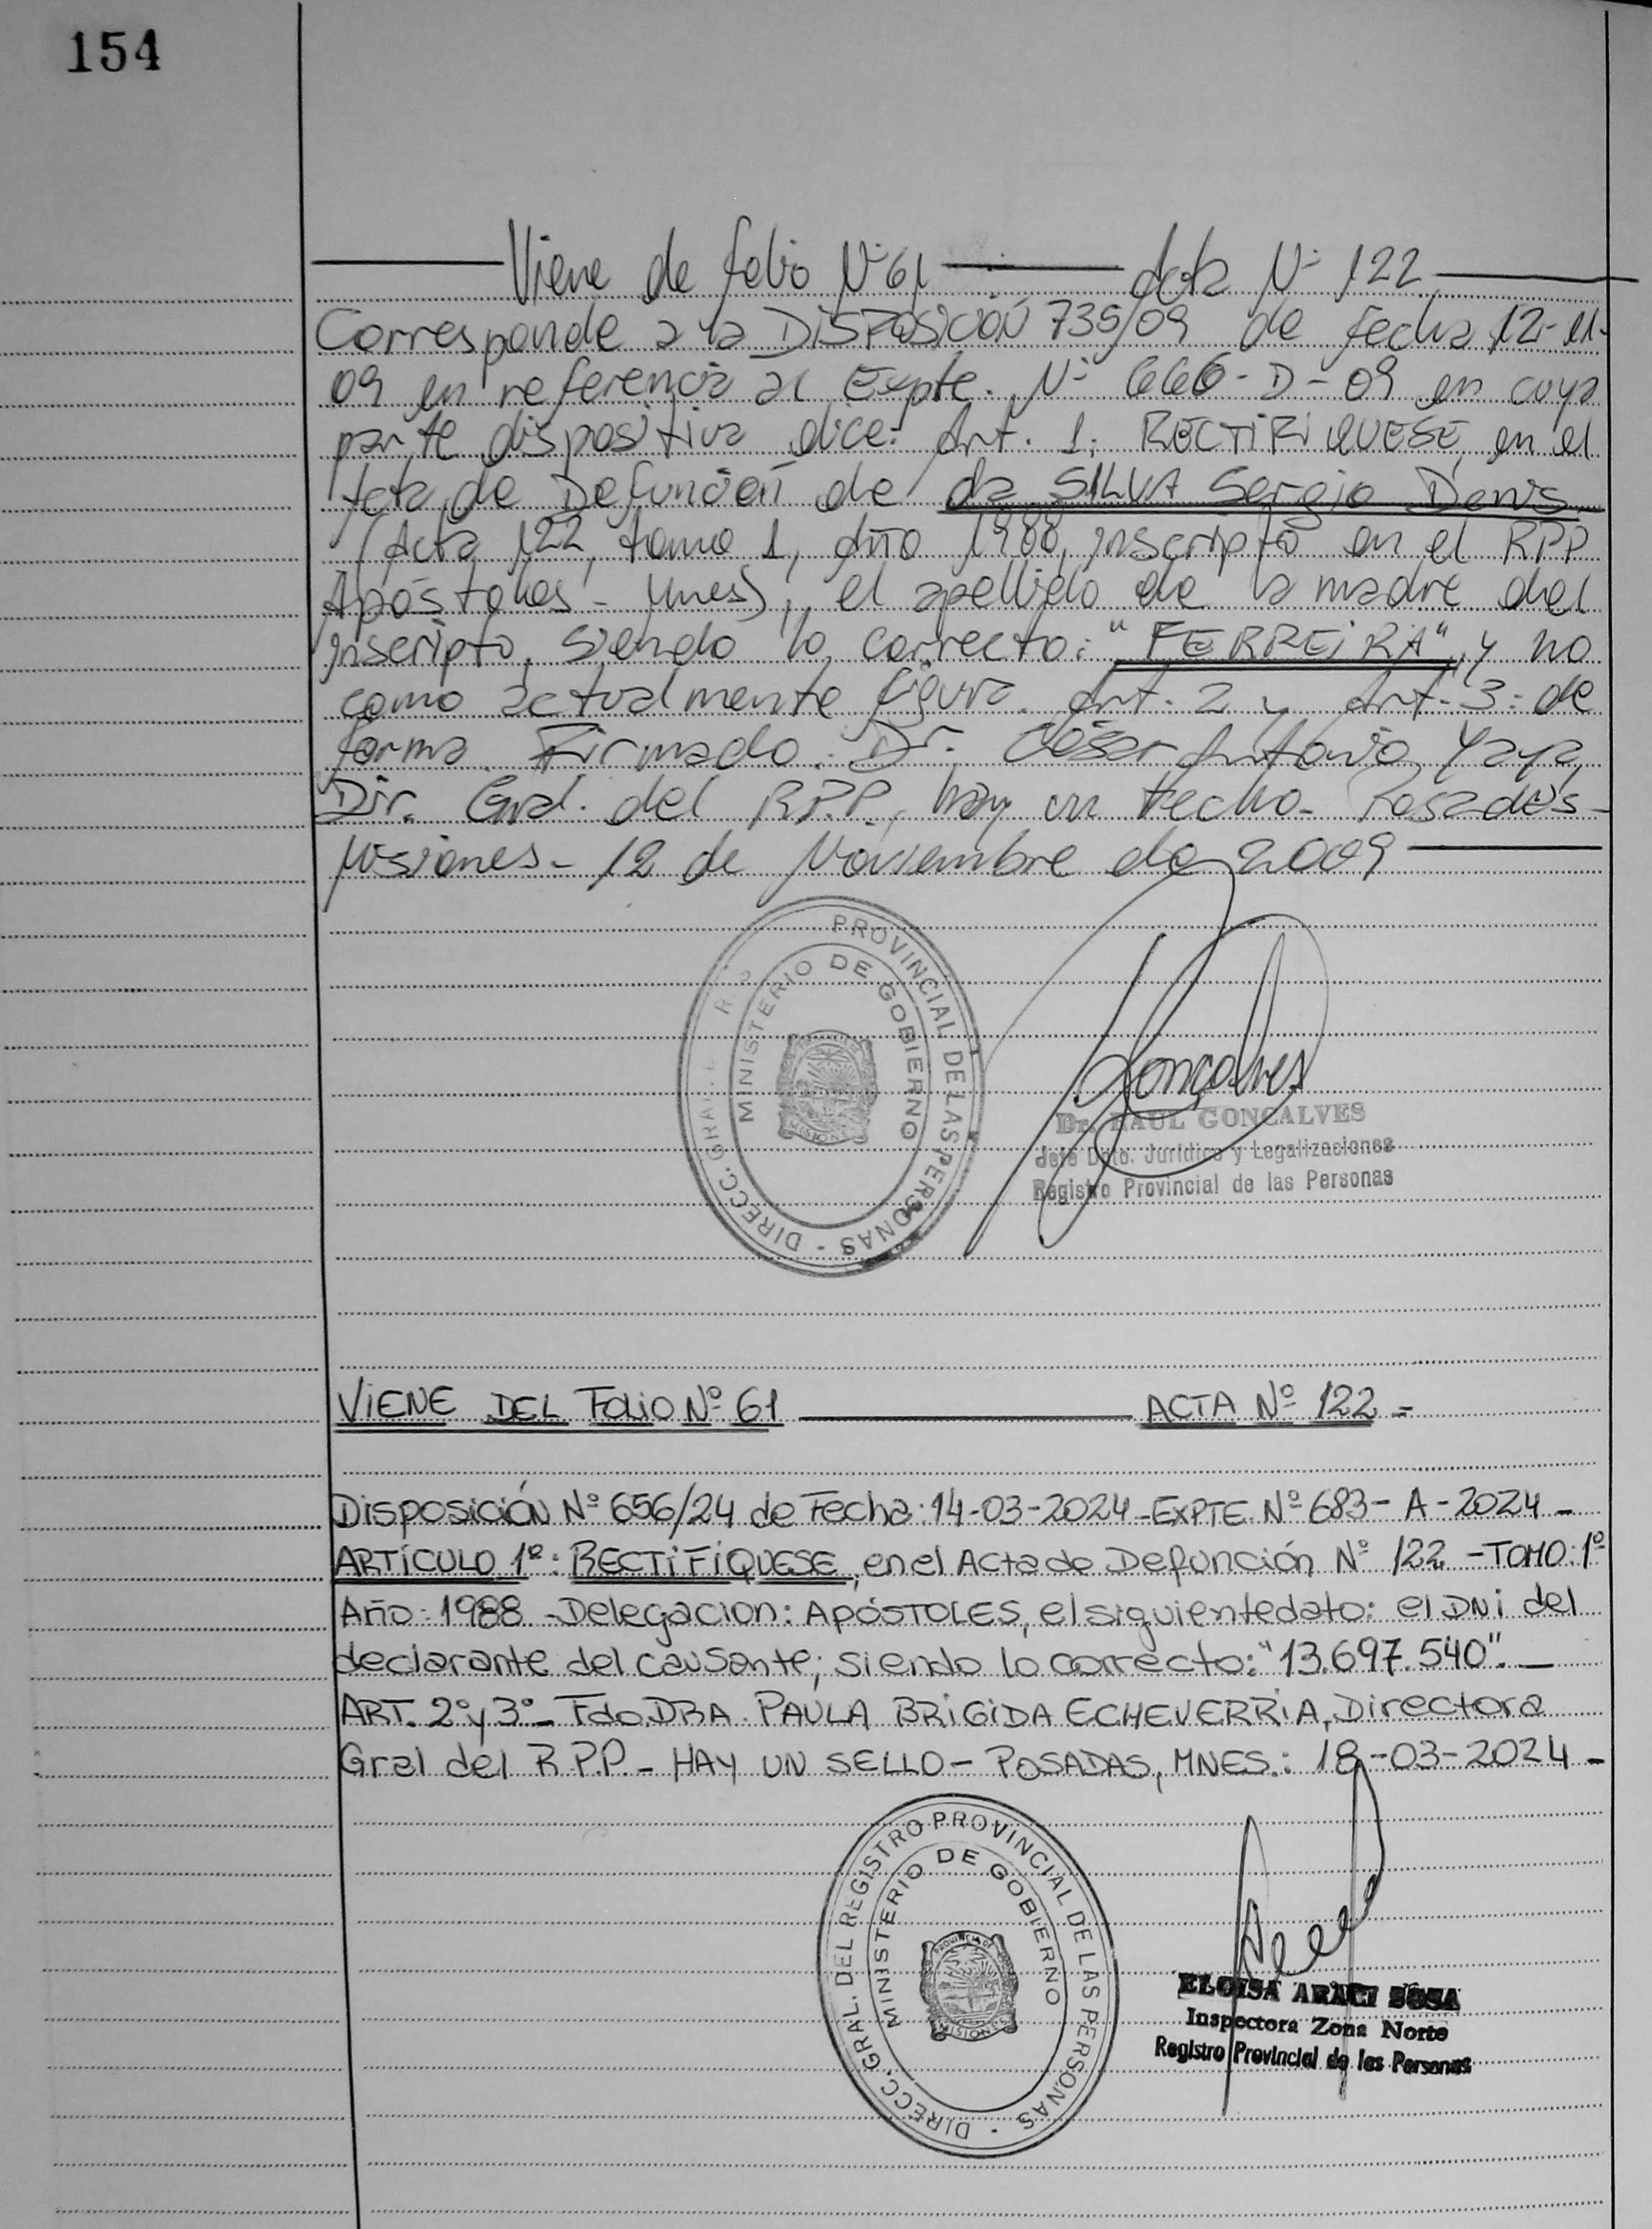 154
Viene de folio N° 61 Acta N° 122
Corresponde a la DISPOSICIÓN 735/09 de fecha 12-11-
09 en referencia al Expte. N° 666-D-09 en cuya
parte dispositiva dice: Art. 1: RECTIFIQUESE, en el
Acta de Defunción de da SILVA Sergio Denis
(Acta 122, tomo 1, Año 1988, inscripto en el RPP
Apóstoles - Mnes), el apellido de la madre del
inscripto, siendo lo correcto: "FERREIRA", y no
como actualmente figura. Art. 2 y Art. 3: de
forma. Firmado: Dr. César Antonio Yaya,
Dir. Gral. del R.P.P., hay un fecho. Posadas-
Misiones - 12 de Noviembre de 2009
DIRECC. GRAL. PROVINCIAL DE LAS PERSONAS -
MINISTERIO DE GOBIERNO
MISIONES
Gonçalves
Dr. RAUL GONCALVES
Jefe Dpto. Jurídico y Legalizaciones
Registro Provincial de las Personas
VIENE DEL FOLIO Nº 61 ACTA Nº 122 -
Disposición Nº 656/24 de Fecha: 14-03-2024 - EXPTE. Nº 683 - A - 2024 -
ARTÍCULO 1º: RECTIFIQUESE, en el Acta de Defunción Nº 122 - TOMO: 1º
Año: 1988 - Delegacion: APÓSTOLES, el siguiente dato: el DNI del
declarante del causante; siendo lo correcto: "13.697.540". -
ART. 2º y 3º - Fdo. DRA. PAULA BRIGIDA ECHEVERRIA, Directora
Gral del R.P.P. - HAY UN SELLO - POSADAS, MNES.: 18-03-2024 -
DIRECC. GRAL. DEL REGISTRO PROVINCIAL DE LAS PERSONAS -
MINISTERIO DE GOBIERNO
PROVINCIA DE
MISIONES
ELOISA ARACI SOSA
Inspectora Zona Norte
Registro Provincial de las Personas